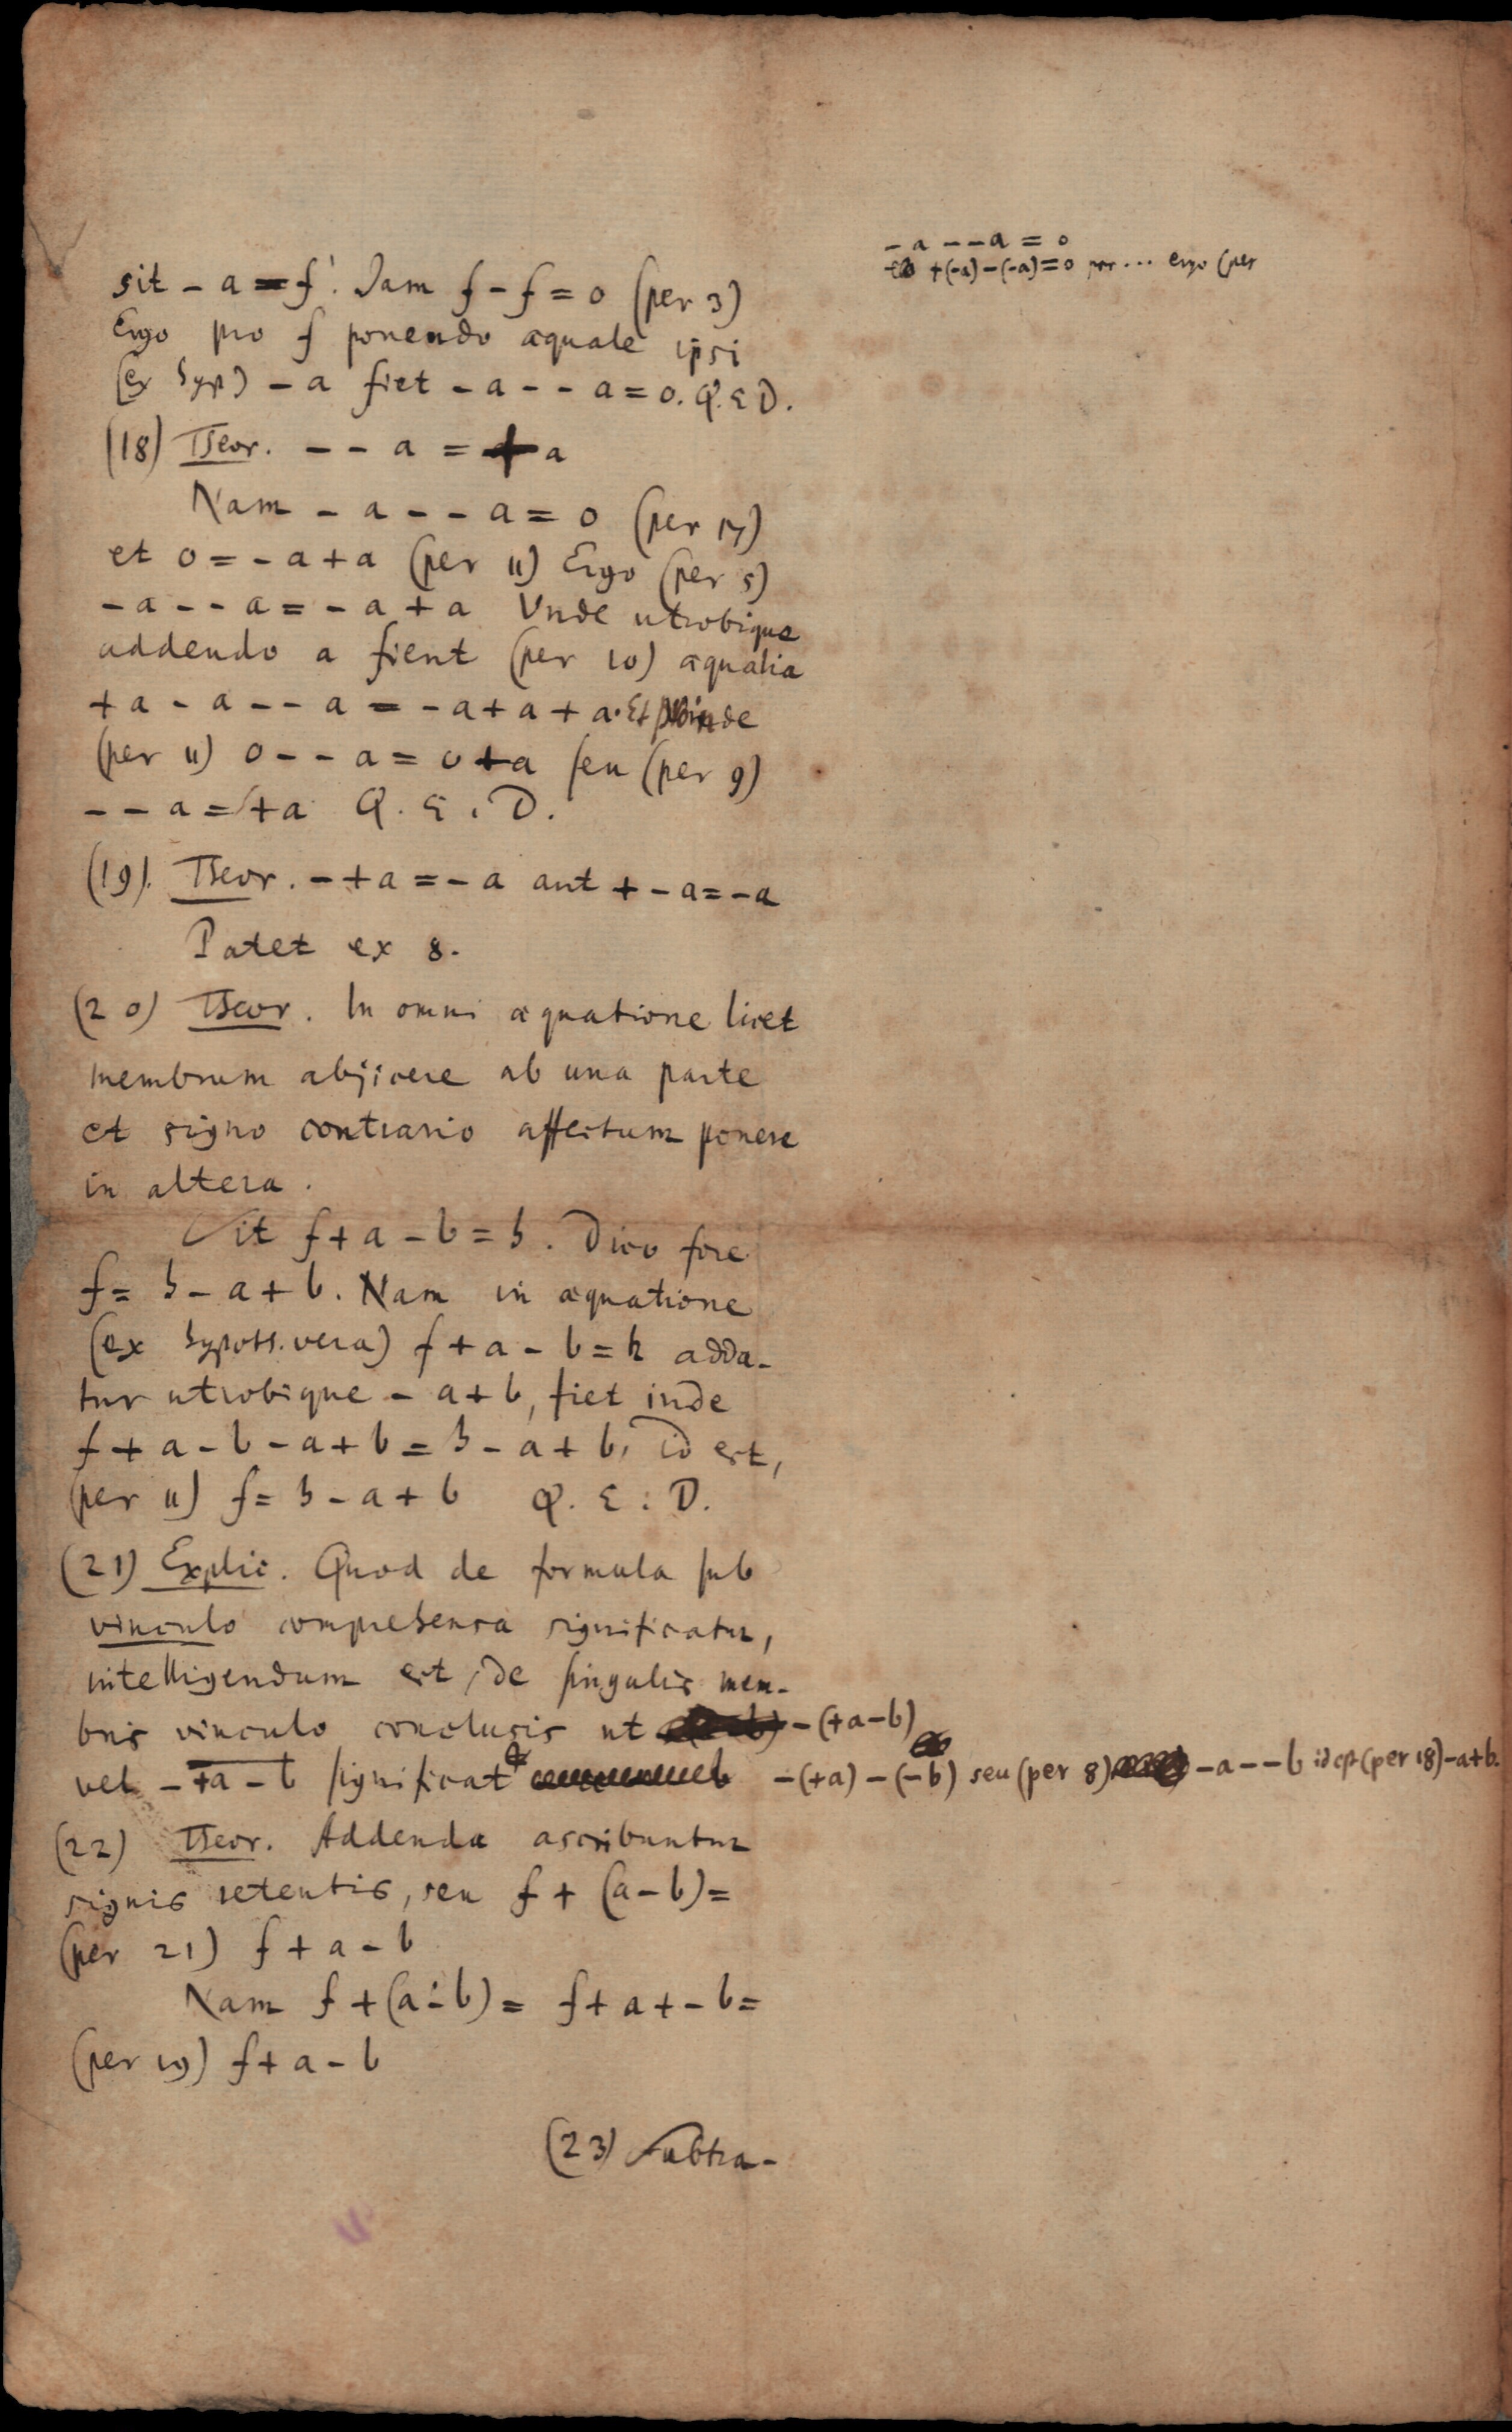 sit - a = f. Jam f - f = 0 (per 3)
Ergo pro f ponendo aequale ipsi
(ex hyp) - a fiet - a - - a = 0. Q.E D.
(18) Theor. - - a = + a
Nam - a - - a = 0 (per 17)
et 0 = - a + a (per 11) Ergo (per 5)
- a - - a = - a + a Unde utrobique
addendo a fient (per 10) aequalia
+ a - a - - a = - a + a + a. Et proinde
(per 11) 0 - - a = 0 + a seu (per 9)
- - a = + a Q. E. D.
(19). Theor. - + a = - a aut + - a = - a
Patet ex 8.
(20) Theor. In omni aequatione licet
membrum abjicere ab una parte
et signo contrario affectum ponere
in altera.
Sit f + a - b = h. Dico fore
f = h - a + b. Nam in aequatione
(ex hypoth. vera) f + a - b = h adda-
tur utrobique - a + b, fiet inde
f + a - b - a + b = h - a + b, id est,
(per 11) f = h - a + b Q. E. D.
(21) Explic. Quod de formula sub
vinculo comprehensa significatur,
intelligendum est, de singulis mem-
bris vinculo conclusis ut - (+a - b)
vel - +a - b significat - (+a) - (-b) seu (per 8) - a - - b id est (per 18) - a + b.
(22) Theor. Addenda ascribuntur
signis retentis, seu f + (a - b) =
(per 21) f + a - b
Nam f + (a - b) = f + a + - b =
(per 19) f + a - b
(23) Subtra-
- a - - a = 0
+ (-a) - (-a) = 0 per ... ergo (per